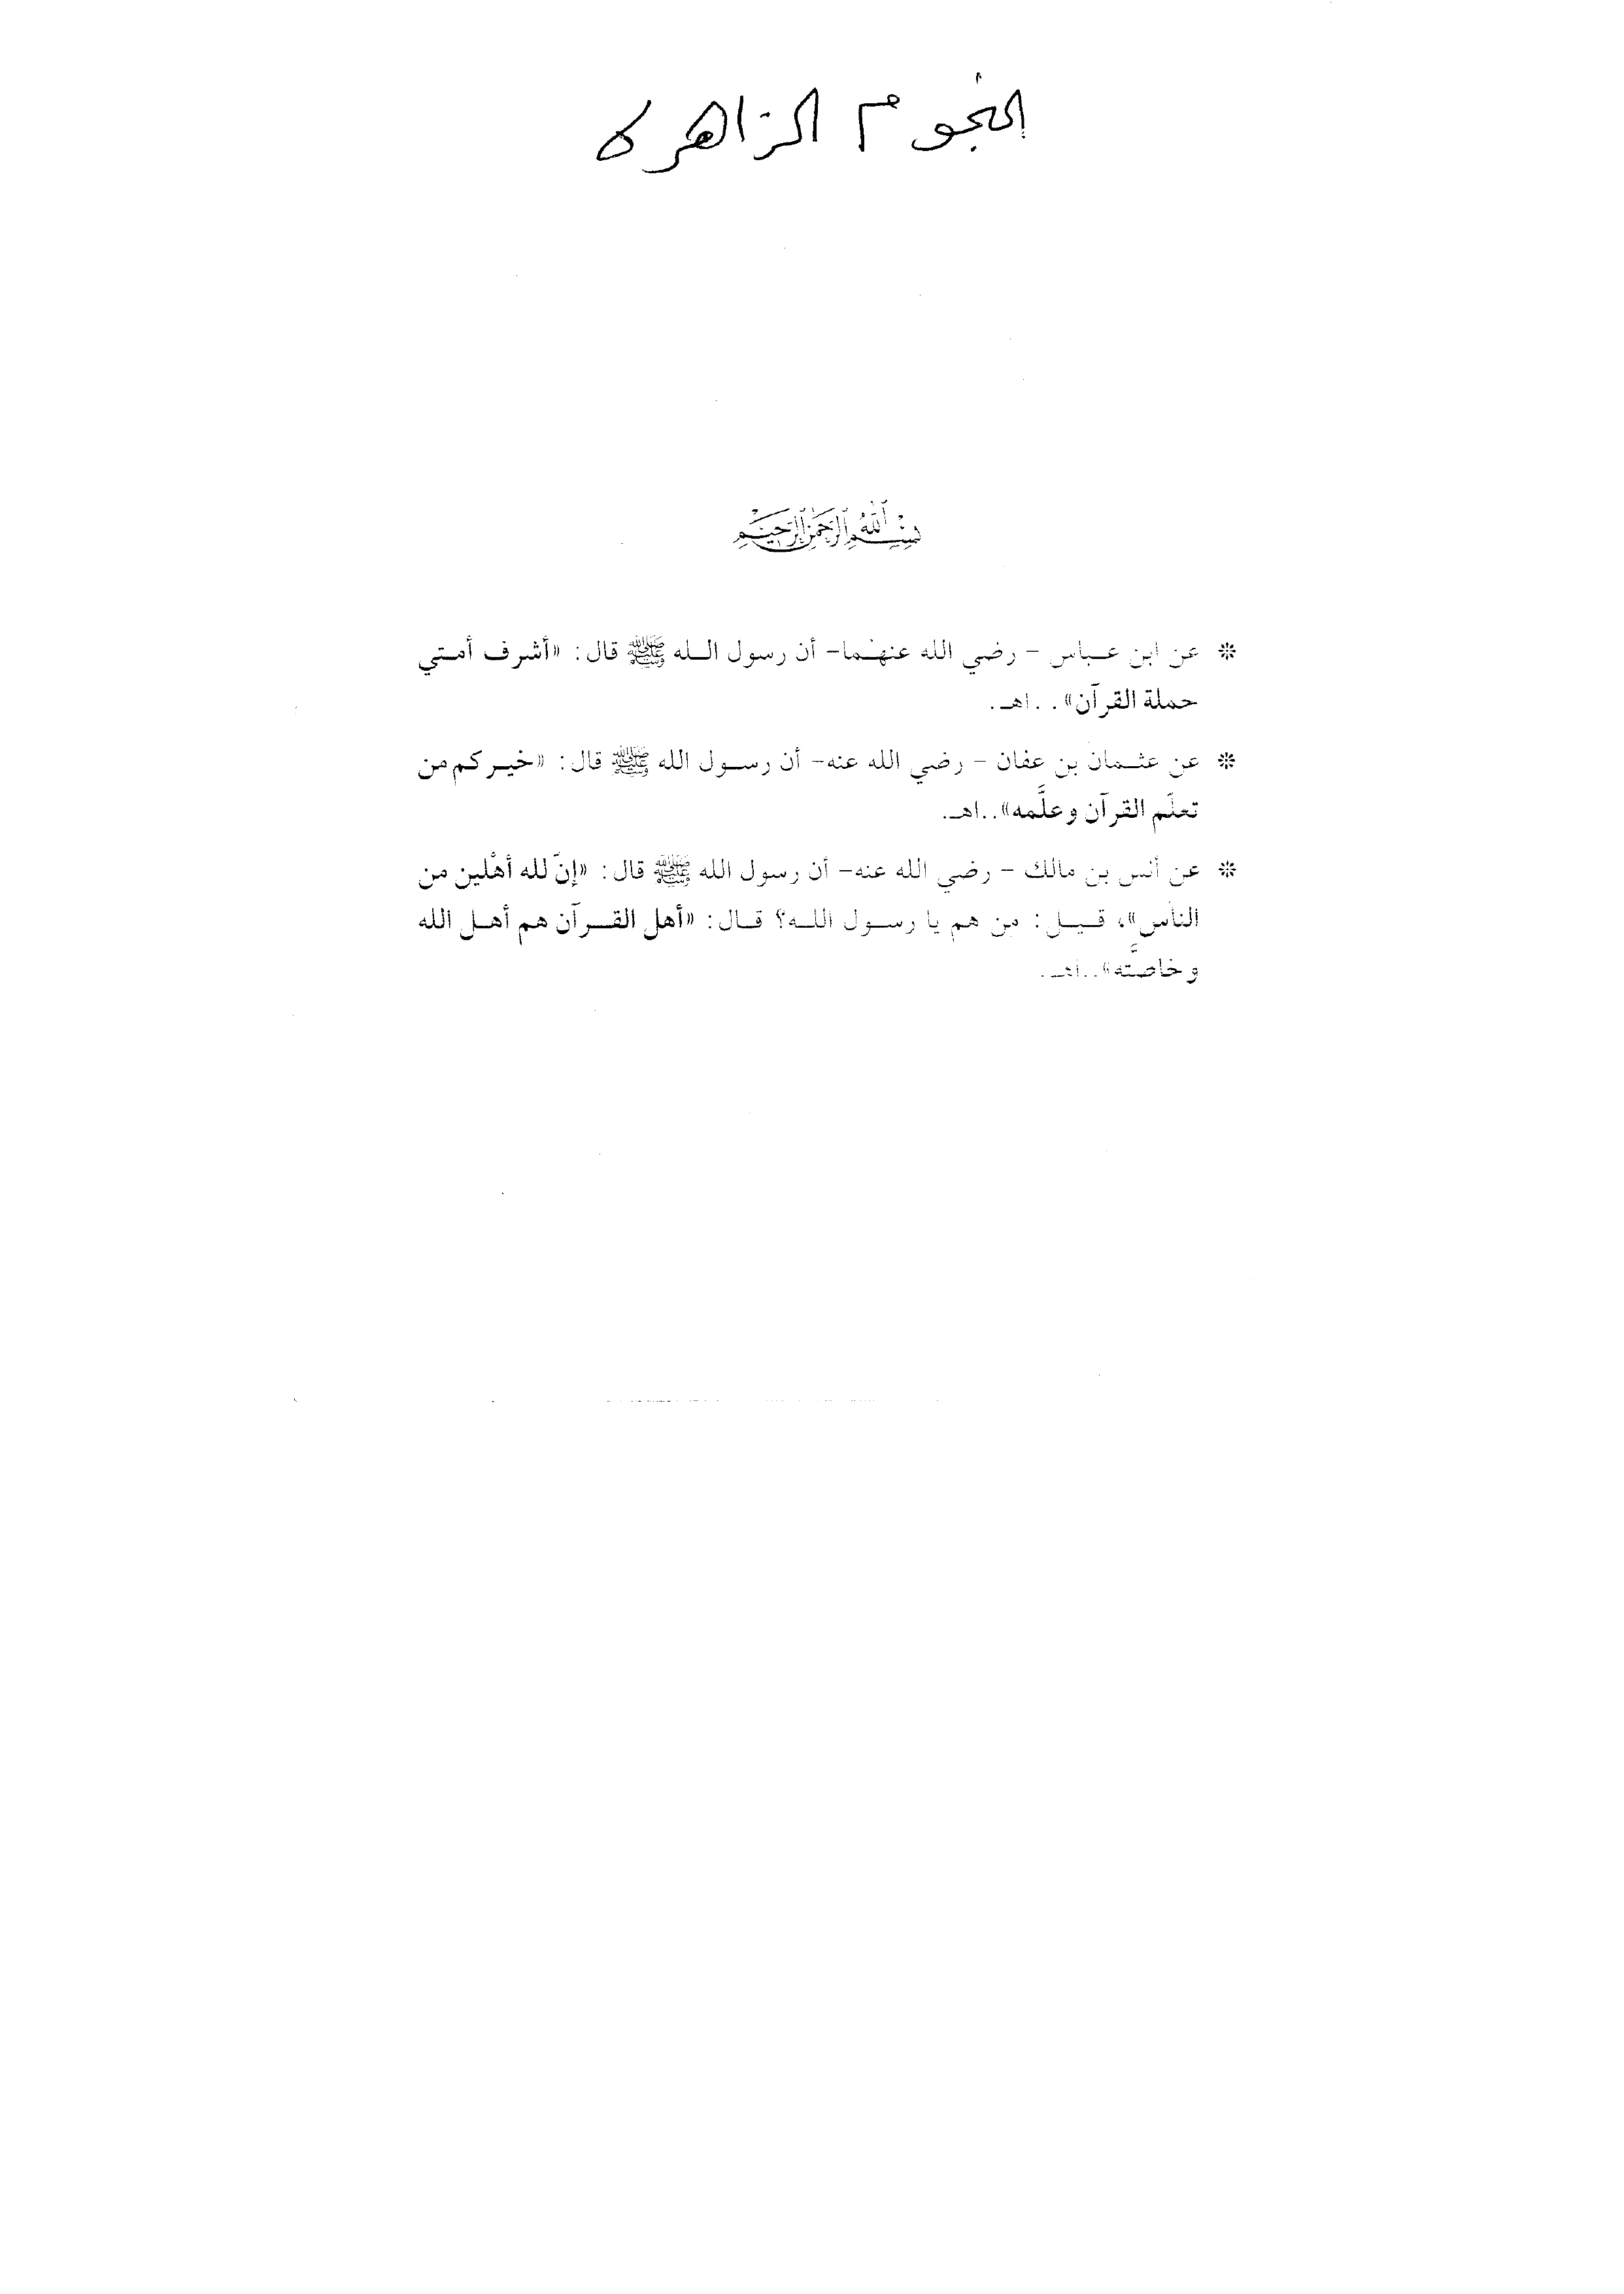 النجوم الزاهرة
بسم الله الرحمن الرحيم
* عن ابن عباس - رضي الله عنهما- أن رسول الله ﷺ قال: «أشرف أمتي
حملة القرآن»..اهـ.
* عن عثمان بن عفان - رضي الله عنه- أن رسول الله ﷺ قال: «خيركم من
تعلّم القرآن وعلَّمه»..اهـ.
* عن أنس بن مالك - رضي الله عنه- أن رسول الله ﷺ قال: «إنّ لله أهْلين من
الناس»، قيل: من هم يا رسول الله؟ قال: «أهل القرآن هم أهل الله
وخاصَّته»..اهـ.